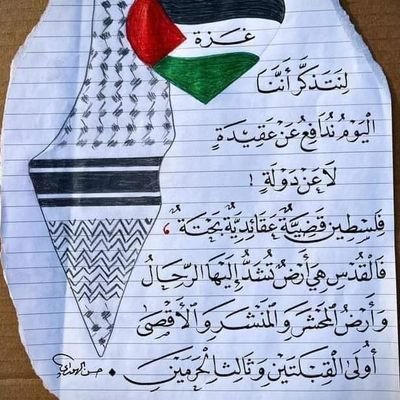 غزة
لِنَتَذَكَّر أَنَّنَا
الْيَوْمُ نُدَافِعُ عَنْ عَقِيدَةٍ
لَا عَنْ دَوْلَةٍ !
فَلَسطِين قَضِيَّةٌ عَقَائِدِيَّةٌ بَحْتَةٌ ،
فَالْقُدْسِ هِيَ أَرْضٌ تُشَدُّ إِلَيْهَا الرِّحَالُ
وَأَرْضُ الْمَحْشَرِ وَالْمَنْشَرِ وَالْأَقْصَى
أُولَى الْقِبْلَتَيْنِ وَثَالِثُ الْحَرَمَيْنِ .